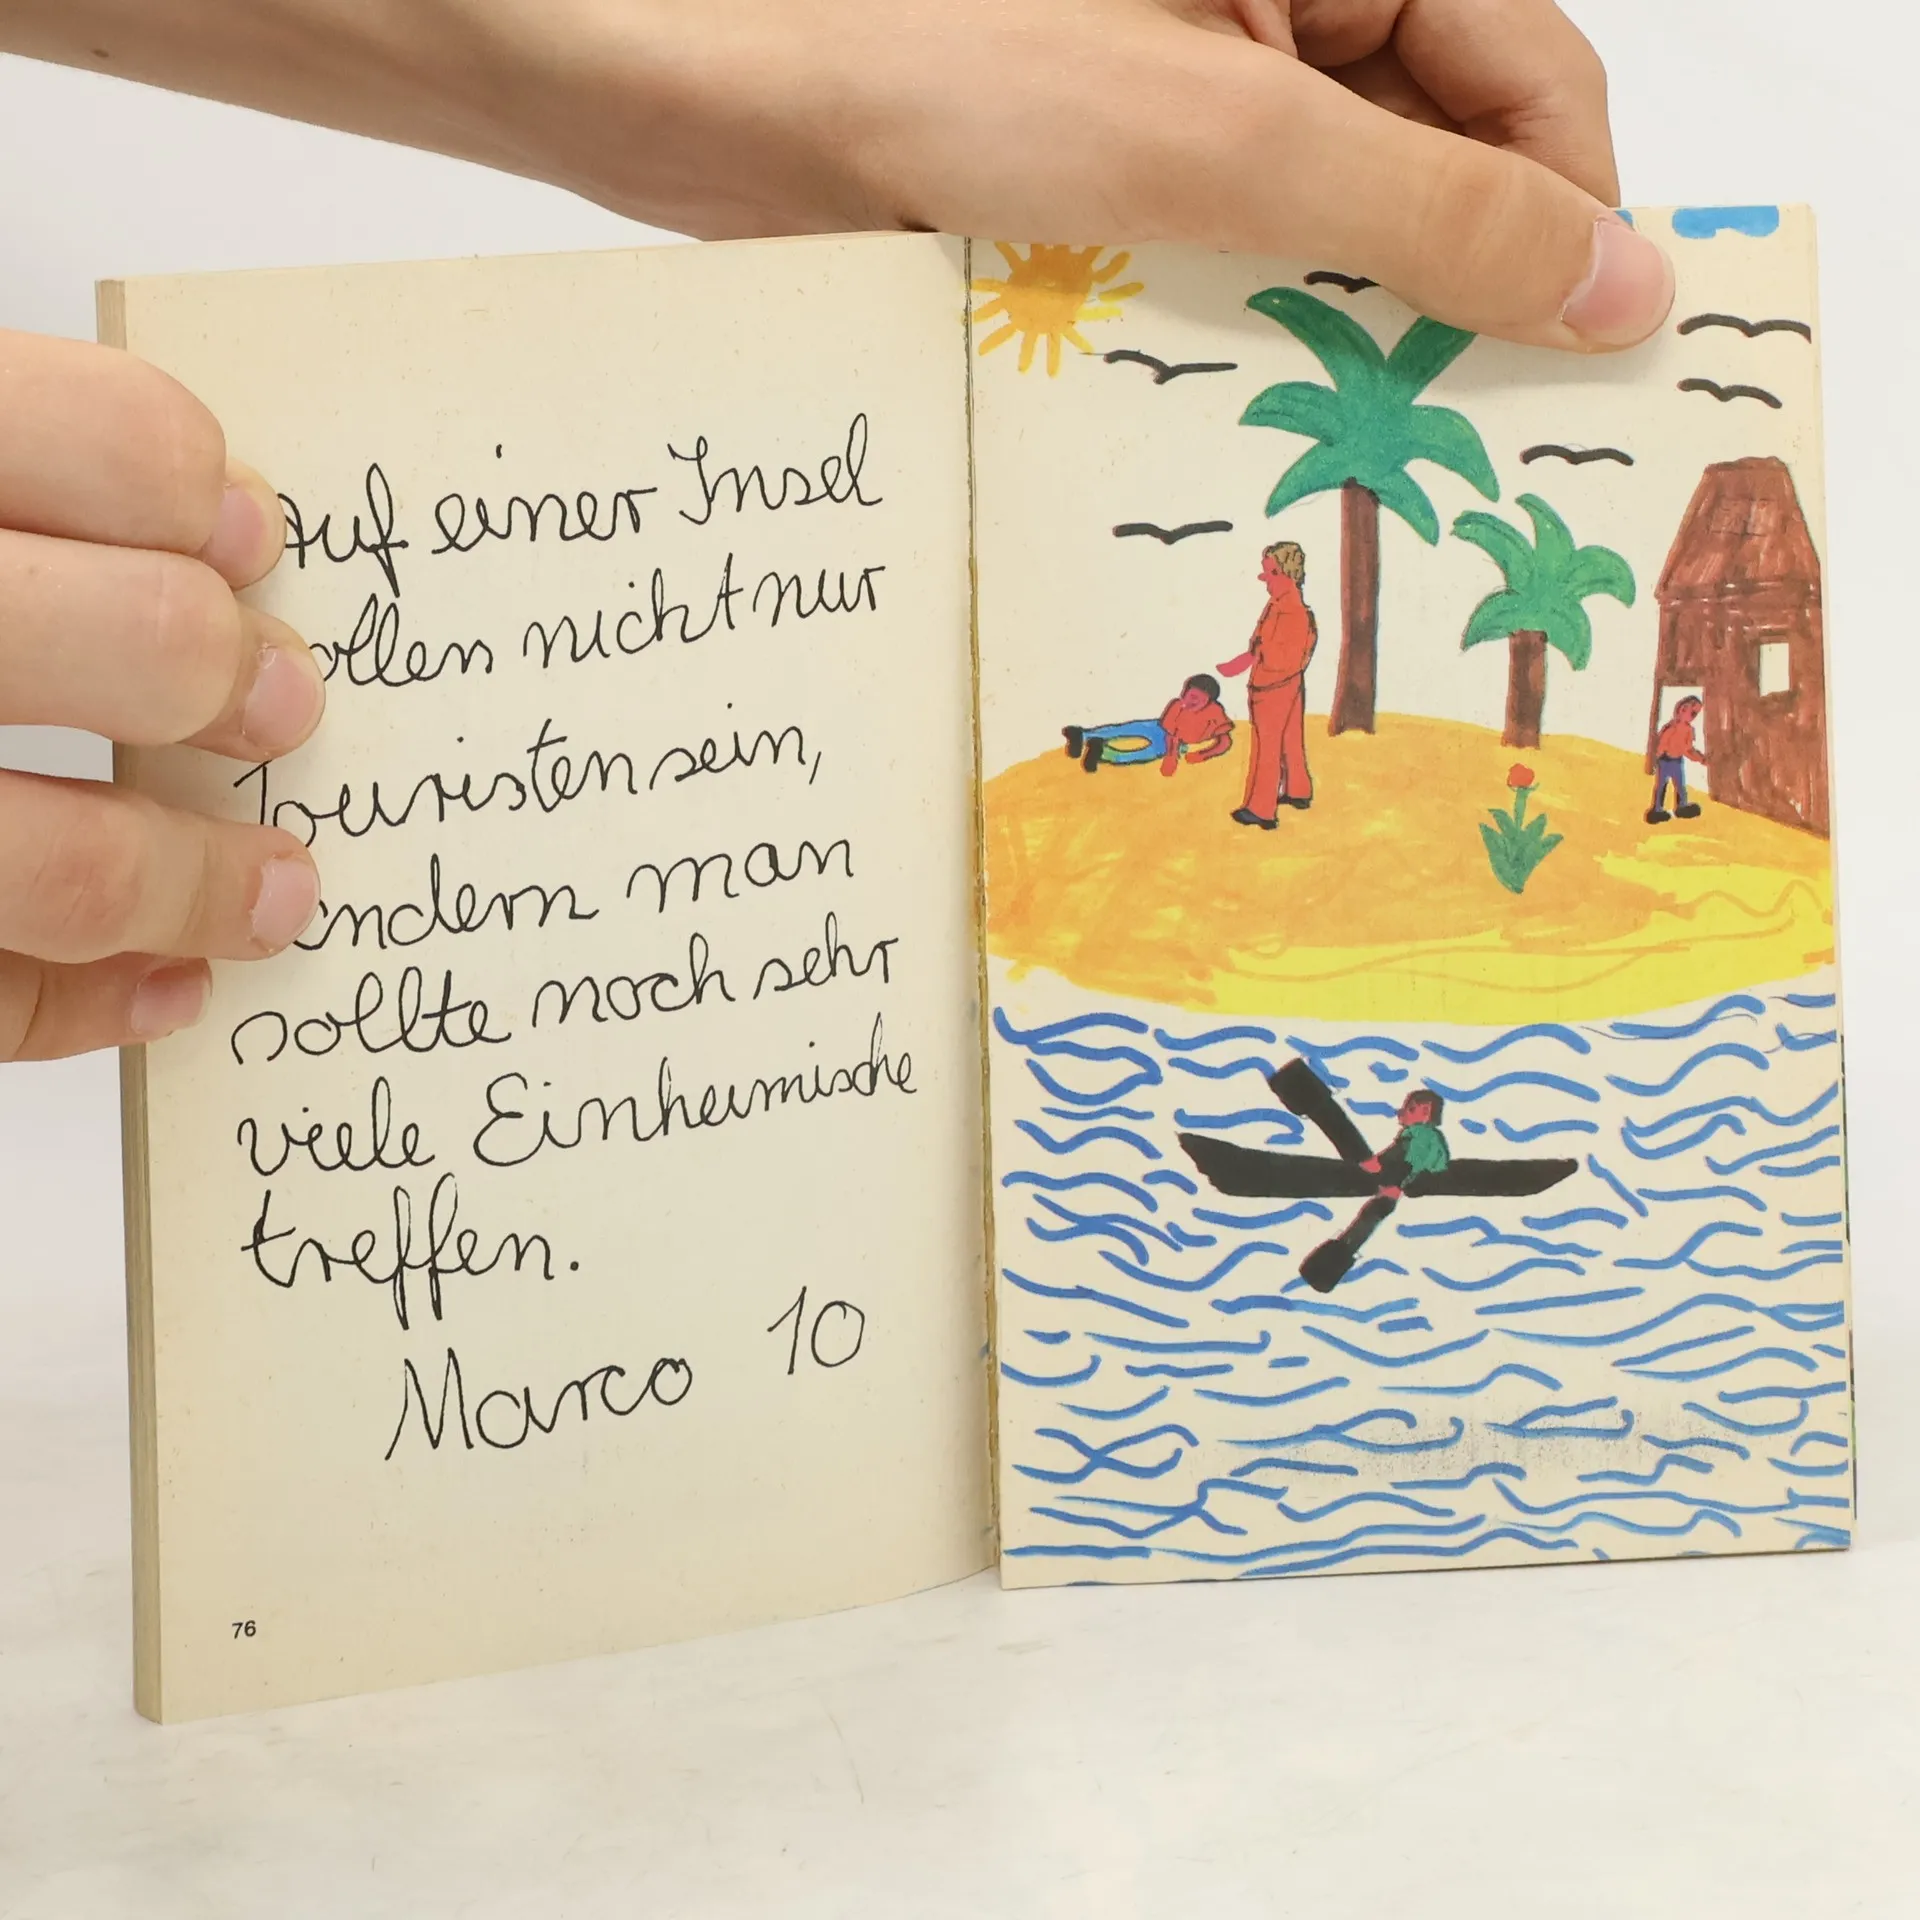 Auf einer Insel
ollen nicht nur
Touristen sein,
ondern man
sollte noch sehr
viele Einheimische
treffen.
Marco 10
76